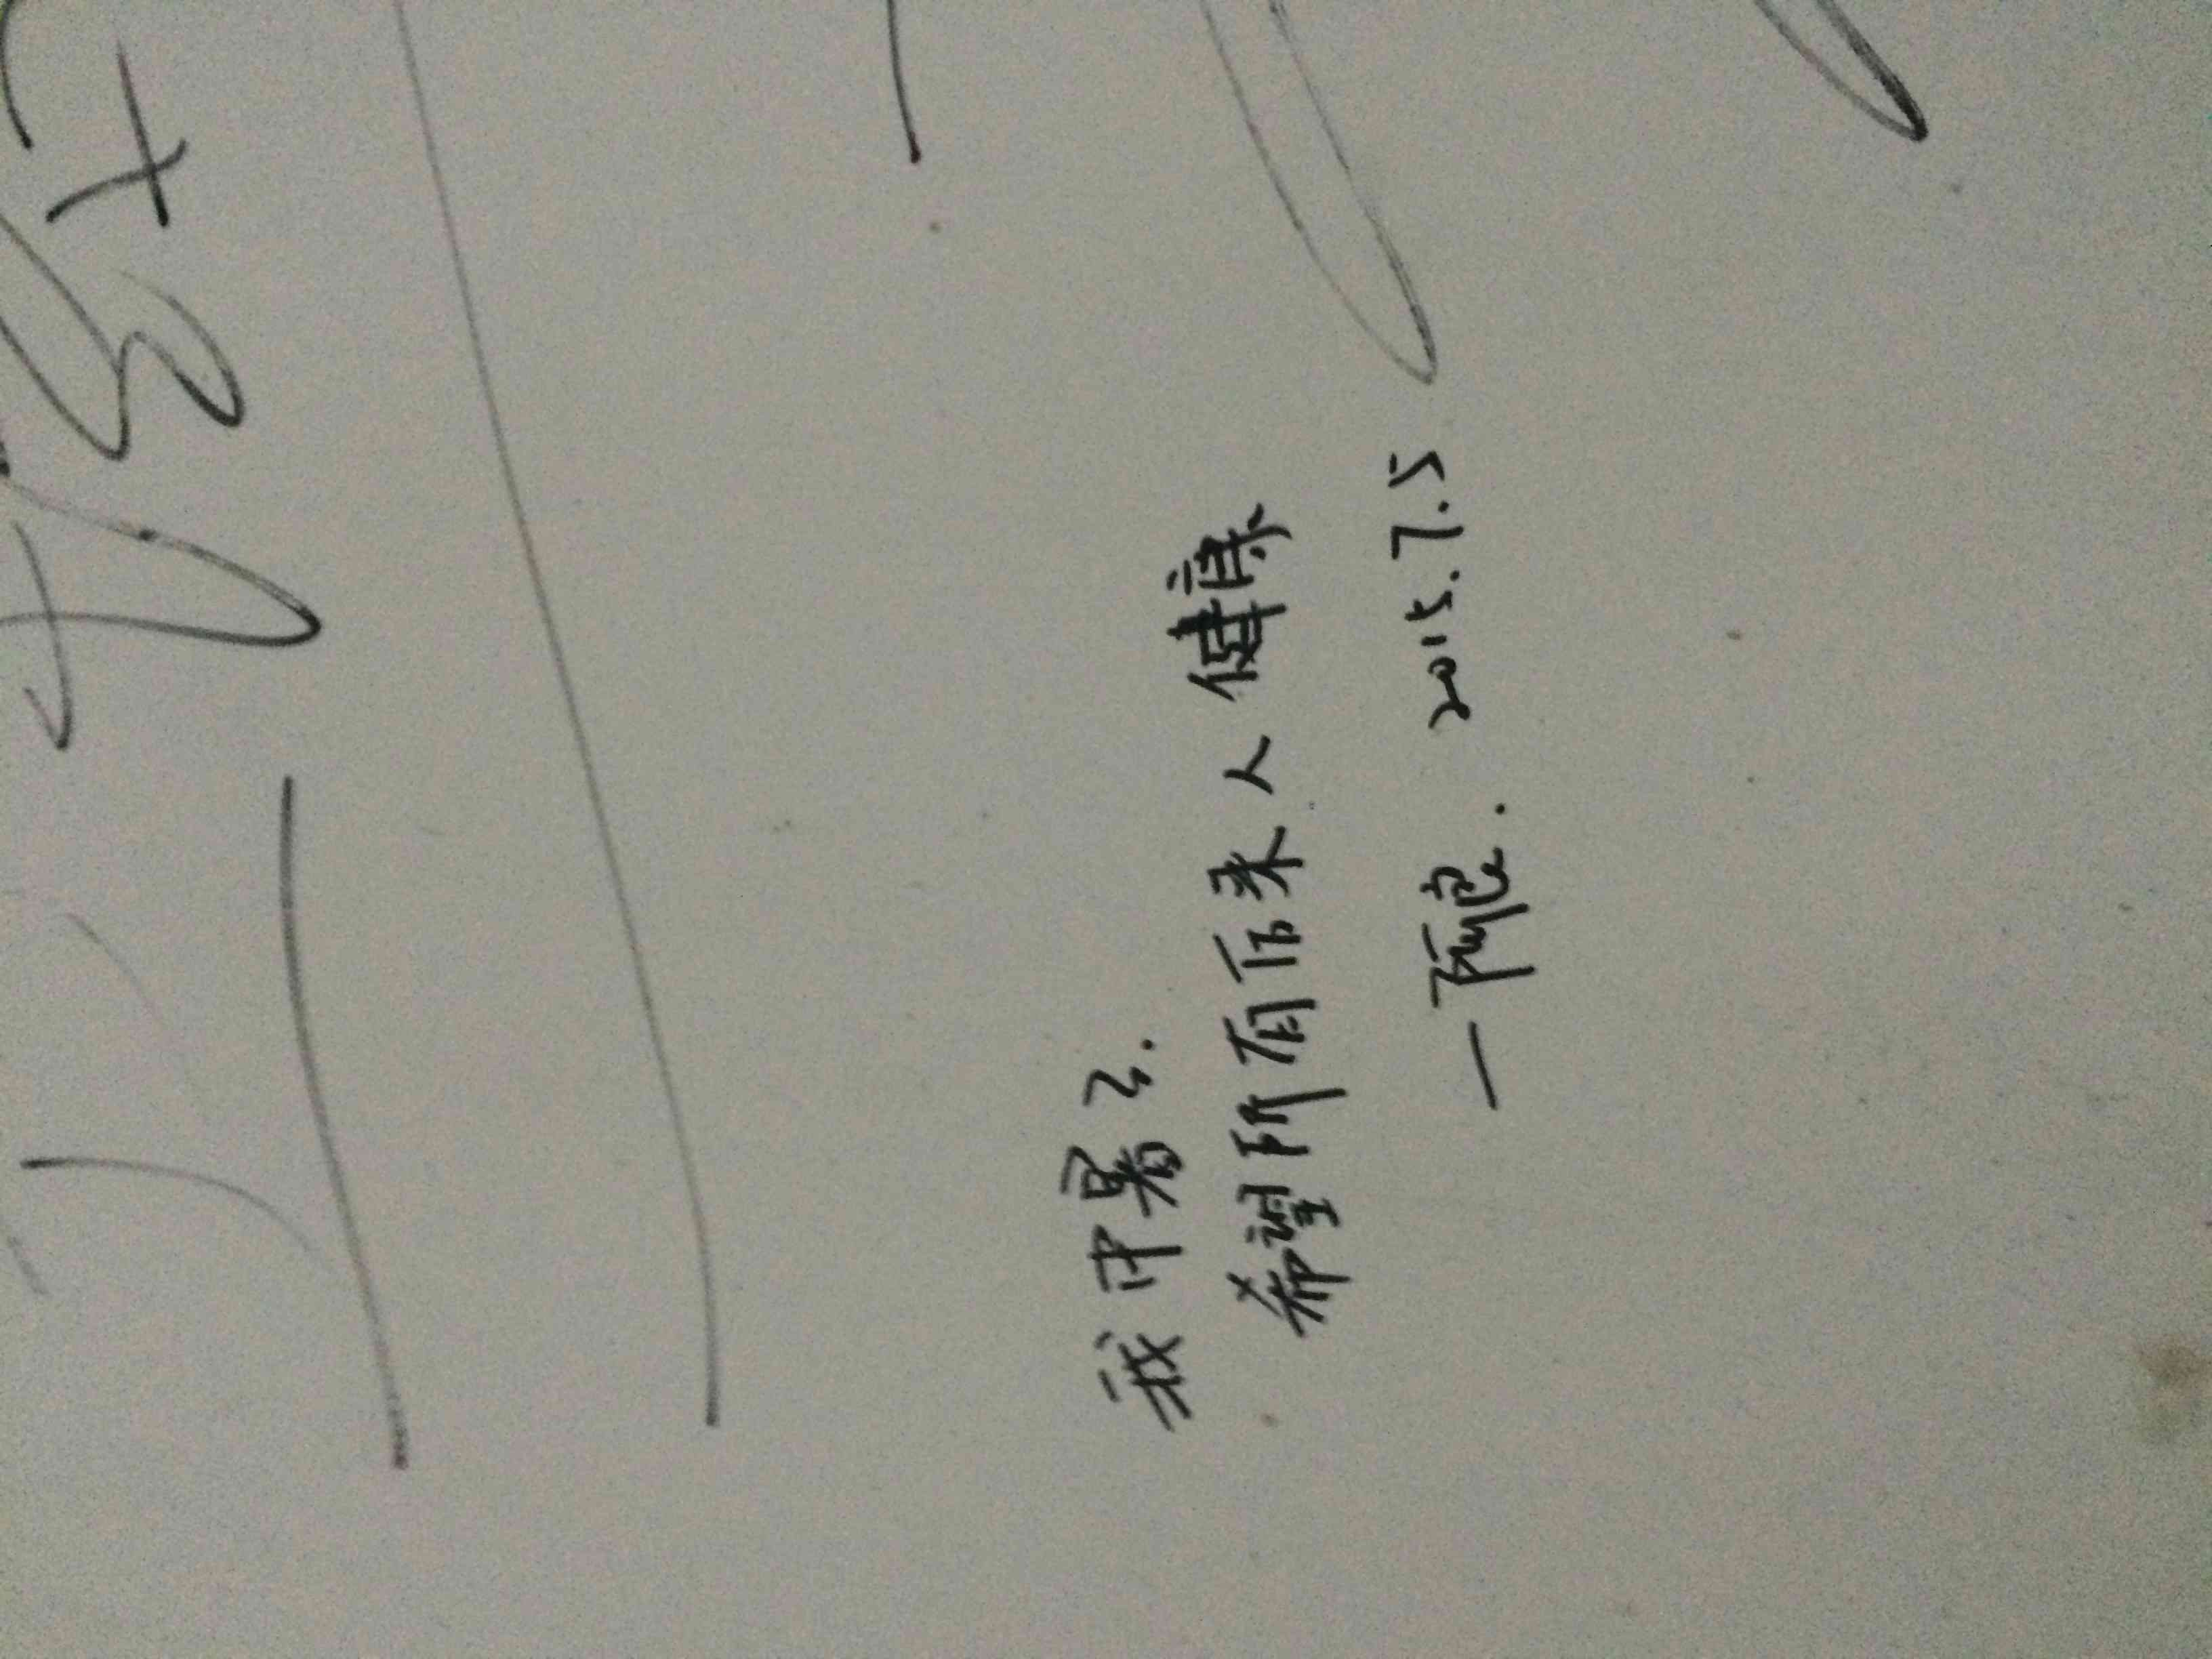 我中暑了.
希望所有后来人健康
—阿良. 2015.7.5